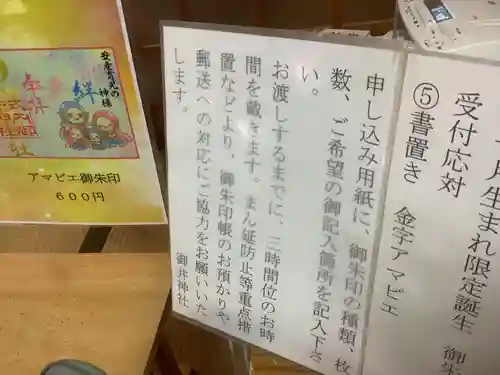 月生まれ限定誕生 御朱
受付応対
⑤書置き 金字アマビエ
申し込み用紙に、御朱印の種類、枚
数、ご希望の御記入箇所を記入下さ
い。
お渡しするまでに、三時間位のお時
間を戴きます。まん延防止等重点措
置などより、御朱印帳のお預かりや
郵送への対応にご協力をお願いいた
します。
御井神社
安産の
神様
絆
奉拝
アマビエ御朱印
600円